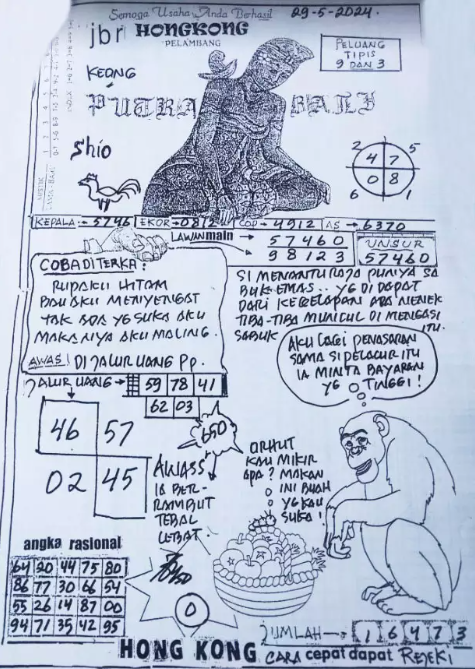 Semoga Usaha Anda Berhasil
29-5-2024.
jbr HONGKONG
PELAMBANG
PELUANG
TIPIS
9 DAN 3
KEONG
PUTRA BALI
Shio
2 5
4 7
0 8
6 1
KEPALA → 5746 EKOR → 0812 COP → 4912 AS → 6370
LAWAN main → 5 7 4 6 0
9 8 1 2 3
UNSUR
57460
COBA DITERKA:
RUPAKU HITAM
BAU AKU MENYENGAT
TAK ADA YG SUKA AKU
MAKANYA AKU MALING.
AWAS! DI JALUR UANG Pp.
SI MENANTU RAJA PUNYA SA
BUK EMAS.. YG DI DAPAT
DARI KEGELAPAN ADA NENEK
TIBA-TIBA MUNCUL DI MENGASI
SABUK ITU.
JALUR UANG → 59 78 41
62 03
AKU LAGI PENASARAN
SAMA SI PELACUR ITU
IA MINTA BAYARAN
YG TINGGI!
46 57
02 45
650
AWASS
IA BER-
RAMBUT
TEBAL
LEBAT
ORHUT
KAU MIKIR
APA? MAKAN
INI BUAH
YG KAU
SUKA!
0
angka rasional
64 20 44 75 80
86 77 30 66 54
53 26 14 87 00
94 71 35 42 95
JUMLAH → 1 6 4 7 3
HONG KONG CARA cepat dapat REJEKI